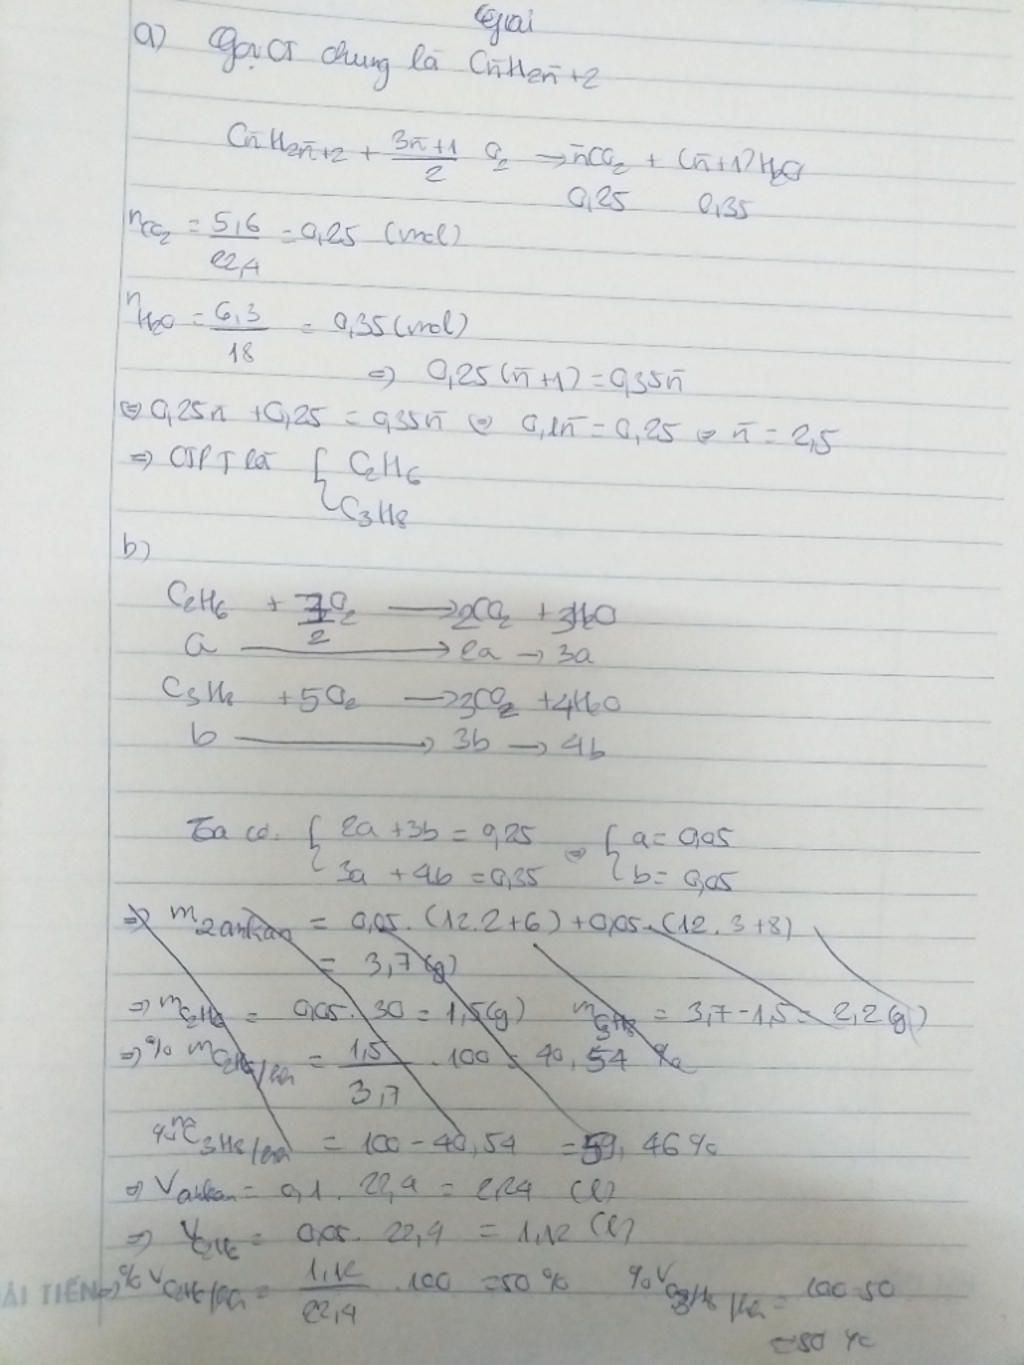 Giải
a) Gọi CT chung là Cn̄H2n̄+2
Cn̄H2n̄+2 + 3n̄+1/2 O2 → n̄CO2 + (n̄+1)H2O
0,25 0,35
nCO2 = 5,6/22,4 = 0,25 (mol)
nH2O = 6,3/18 = 0,35 (mol)
=> 0,25(n̄+1) = 0,35n̄
<=> 0,25n̄ + 0,25 = 0,35n̄ <=> 0,1n̄ = 0,25 <=> n̄ = 2,5
=> CTPT là { C2H6
C3H8
b)
C2H6 + 7/2 O2 → 2CO2 + 3H2O
a → 2a → 3a
C3H8 + 5O2 → 3CO2 + 4H2O
b → 3b → 4b
Ta có: { 2a + 3b = 0,25 => { a = 0,05
3a + 4b = 0,35 b = 0,05
=> m2ankan = 0,05.(12.2+6) + 0,05.(12.3+8)
= 3,7(g)
=> mC2H6 = 0,05.30 = 1,5(g) mC3H8 = 3,7-1,5 = 2,2(g)
=> % mC2H6/hh = 1,5/3,7 .100 = 40,54 %
%mC3H8/hh = 100 - 40,54 = 59,46%
=> Vankan = 0,1.22,4 = 2,24 (l)
=> VC2H6 = 0,05.22,4 = 1,12 (l)
ẢI TIẾN => %VC2H6/hh = 1,12/22,4 .100 = 50% %VC3H8/hh = 100-50
= 50 %